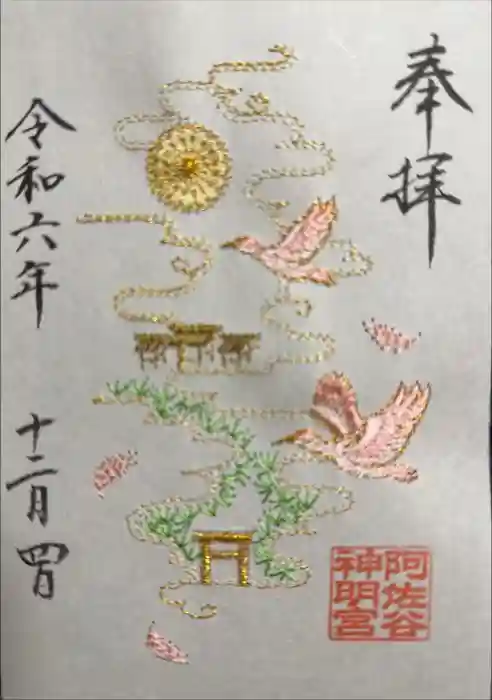 奉拝
阿佐谷
神明宮
令和六年
十二月四日